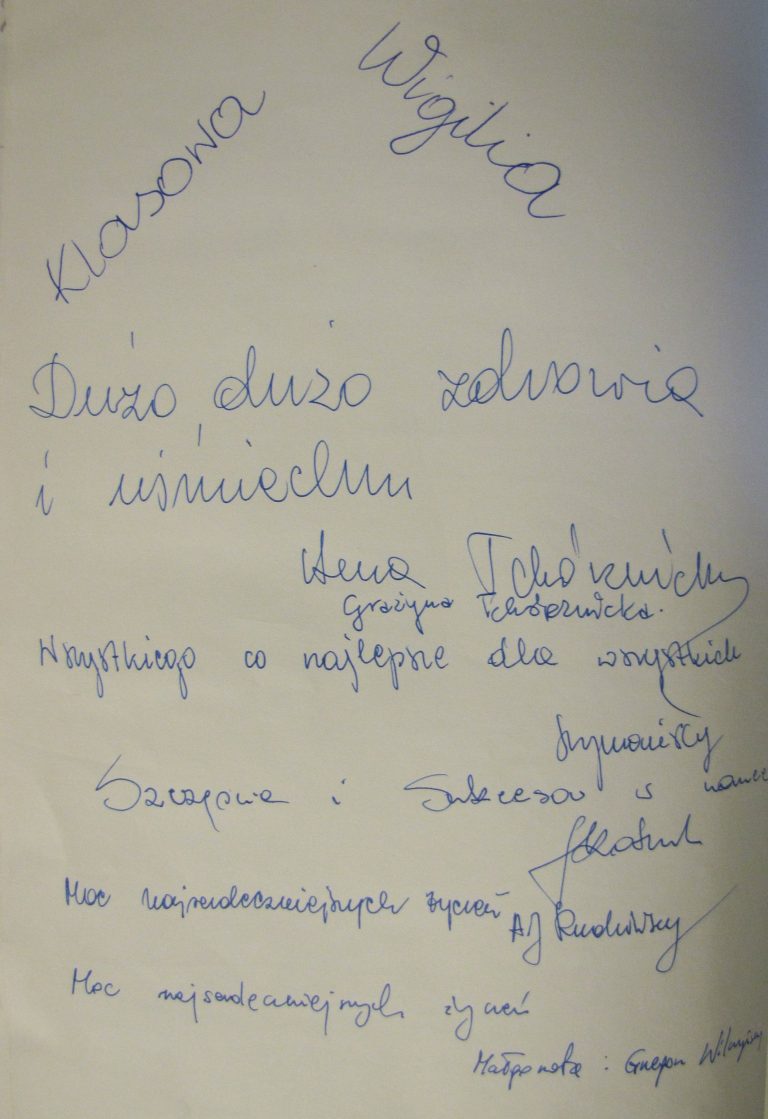 Klasowa Wigilia
Dużo, dużo zdrowia
i uśmiechu
Anna Tchórznicka
Grażyna Tchórznicka.
Wszystkiego co najlepsze dla wszystkich
Szymańscy
Szczęścia i Sukcesów w nauce
Moc najserdeczniejszych życzeń
AJ Rudkowscy
Moc najserdeczniejszych życzeń
Małgorzata i Grzegorz